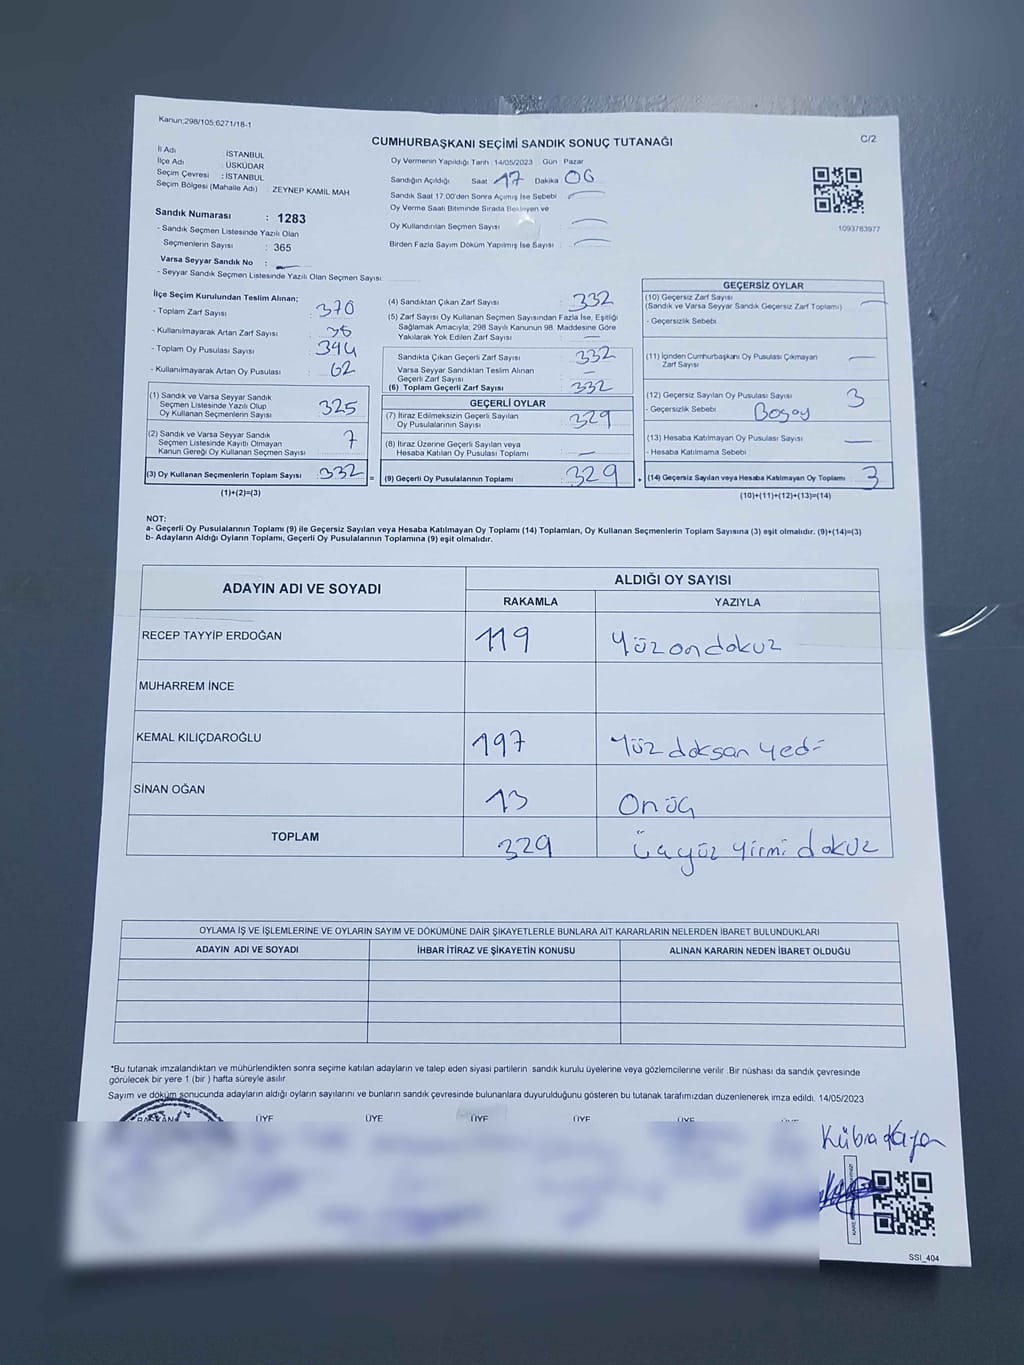 Kanun;298/105;6271/18-1
CUMHURBAŞKANI SEÇİMİ SANDIK SONUÇ TUTANAĞI
C/2
İl Adı : İSTANBUL
İlçe Adı : ÜSKÜDAR
Seçim Çevresi : İSTANBUL
Seçim Bölgesi (Mahalle Adı) : ZEYNEP KAMİL MAH.
Sandık Numarası : 1283
- Sandık Seçmen Listesinde Yazılı Olan
Seçmenlerin Sayısı : 365
Varsa Seyyar Sandık No :
- Seyyar Sandık Seçmen Listesinde Yazılı Olan Seçmen Sayısı:
Oy Vermenin Yapıldığı Tarih : 14/05/2023 Gün : Pazar
Sandığın Açıldığı Saat 17 Dakika 06
Sandık Saat 17:00'den Sonra Açılmış İse Sebebi
Oy Verme Saati Bitiminde Sırada Bekleyen ve
Oy Kullandırılan Seçmen Sayısı
Birden Fazla Sayım Döküm Yapılmış İse Sayısı
1093763977
İlçe Seçim Kurulundan Teslim Alınan;
- Toplam Zarf Sayısı 370
- Kullanılmayarak Artan Zarf Sayısı
- Toplam Oy Pusulası Sayısı 394
- Kullanılmayarak Artan Oy Pusulası 62
(1) Sandık ve Varsa Seyyar Sandık
Seçmen Listesinde Yazılı Olup
Oy Kullanan Seçmenlerin Sayısı 325
(2) Sandık ve Varsa Seyyar Sandık
Seçmen Listesinde Kayıtlı Olmayan
Kanun Gereği Oy Kullanan Seçmen Sayısı 7
(3) Oy Kullanan Seçmenlerin Toplam Sayısı 332 =
(1)+(2)=(3)
(4) Sandıktan Çıkan Zarf Sayısı 332
(5) Zarf Sayısı Oy Kullanan Seçmen Sayısından Fazla İse, Eşitliği
Sağlamak Amacıyla, 298 Sayılı Kanunun 98. Maddesine Göre
Yakılarak Yok Edilen Zarf Sayısı —
Sandıkta Çıkan Geçerli Zarf Sayısı 332
Varsa Seyyar Sandıktan Teslim Alınan
Geçerli Zarf Sayısı —
(6) Toplam Geçerli Zarf Sayısı 332
GEÇERLİ OYLAR
(7) İtiraz Edilmeksizin Geçerli Sayılan
Oy Pusulalarının Sayısı 329
(8) İtiraz Üzerine Geçerli Sayılan veya
Hesaba Katılan Oy Pusulası Toplamı —
(9) Geçerli Oy Pusulalarının Toplamı 329 +
GEÇERSİZ OYLAR
(10) Geçersiz Zarf Sayısı
(Sandık ve Varsa Seyyar Sandık Geçersiz Zarf Toplamı) —
- Geçersizlik Sebebi
(11) İçinden Cumhurbaşkanı Oy Pusulası Çıkmayan
Zarf Sayısı —
(12) Geçersiz Sayılan Oy Pusulası Sayısı 3
- Geçersizlik Sebebi
(13) Hesaba Katılmayan Oy Pusulası Sayısı —
- Hesaba Katılmama Sebebi
(14) Geçersiz Sayılan veya Hesaba Katılmayan Oy Toplamı 3
(10)+(11)+(12)+(13)=(14)
NOT:
a- Geçerli Oy Pusulalarının Toplamı (9) ile Geçersiz Sayılan veya Hesaba Katılmayan Oy Toplamı (14) Toplamları, Oy Kullanan Seçmenlerin Toplam Sayısına (3) eşit olmalıdır. (9)+(14)=(3)
b- Adayların Aldığı Oyların Toplamı, Geçerli Oy Pusulalarının Toplamına (9) eşit olmalıdır.
ADAYIN ADI VE SOYADI
ALDIĞI OY SAYISI
RAKAMLA YAZIYLA
RECEP TAYYİP ERDOĞAN 119 Yüzondokuz
MUHARREM İNCE
KEMAL KILIÇDAROĞLU 197 Yüz doksan yedi
SİNAN OĞAN 13 Onüç
TOPLAM 329 üçyüz yirmi dokuz
OYLAMA İŞ VE İŞLEMLERİNE VE OYLARIN SAYIM VE DÖKÜMÜNE DAİR ŞİKAYETLERLE BUNLARA AİT KARARLARIN NELERDEN İBARET BULUNDUKLARI
ADAYIN ADI VE SOYADI İHBAR İTİRAZ VE ŞİKAYETİN KONUSU ALINAN KARARIN NEDEN İBARET OLDUĞU
*Bu tutanak imzalandıktan ve mühürlendikten sonra seçime katılan adayların ve talep eden siyasi partilerin sandık kurulu üyelerine veya gözlemcilerine verilir. Bir nüshası da sandık çevresinde
görülecek bir yere 1 (bir ) hafta süreyle asılır
Sayım ve döküm sonucunda adayların aldığı oyların sayılarını ve bunların sandık çevresinde bulunanlara duyurulduğunu gösteren bu tutanak tarafımızdan düzenlenerek imza edildi. 14/05/2023
BAŞKAN ÜYE ÜYE ÜYE ÜYE ÜYE
Kübra
SSI_404